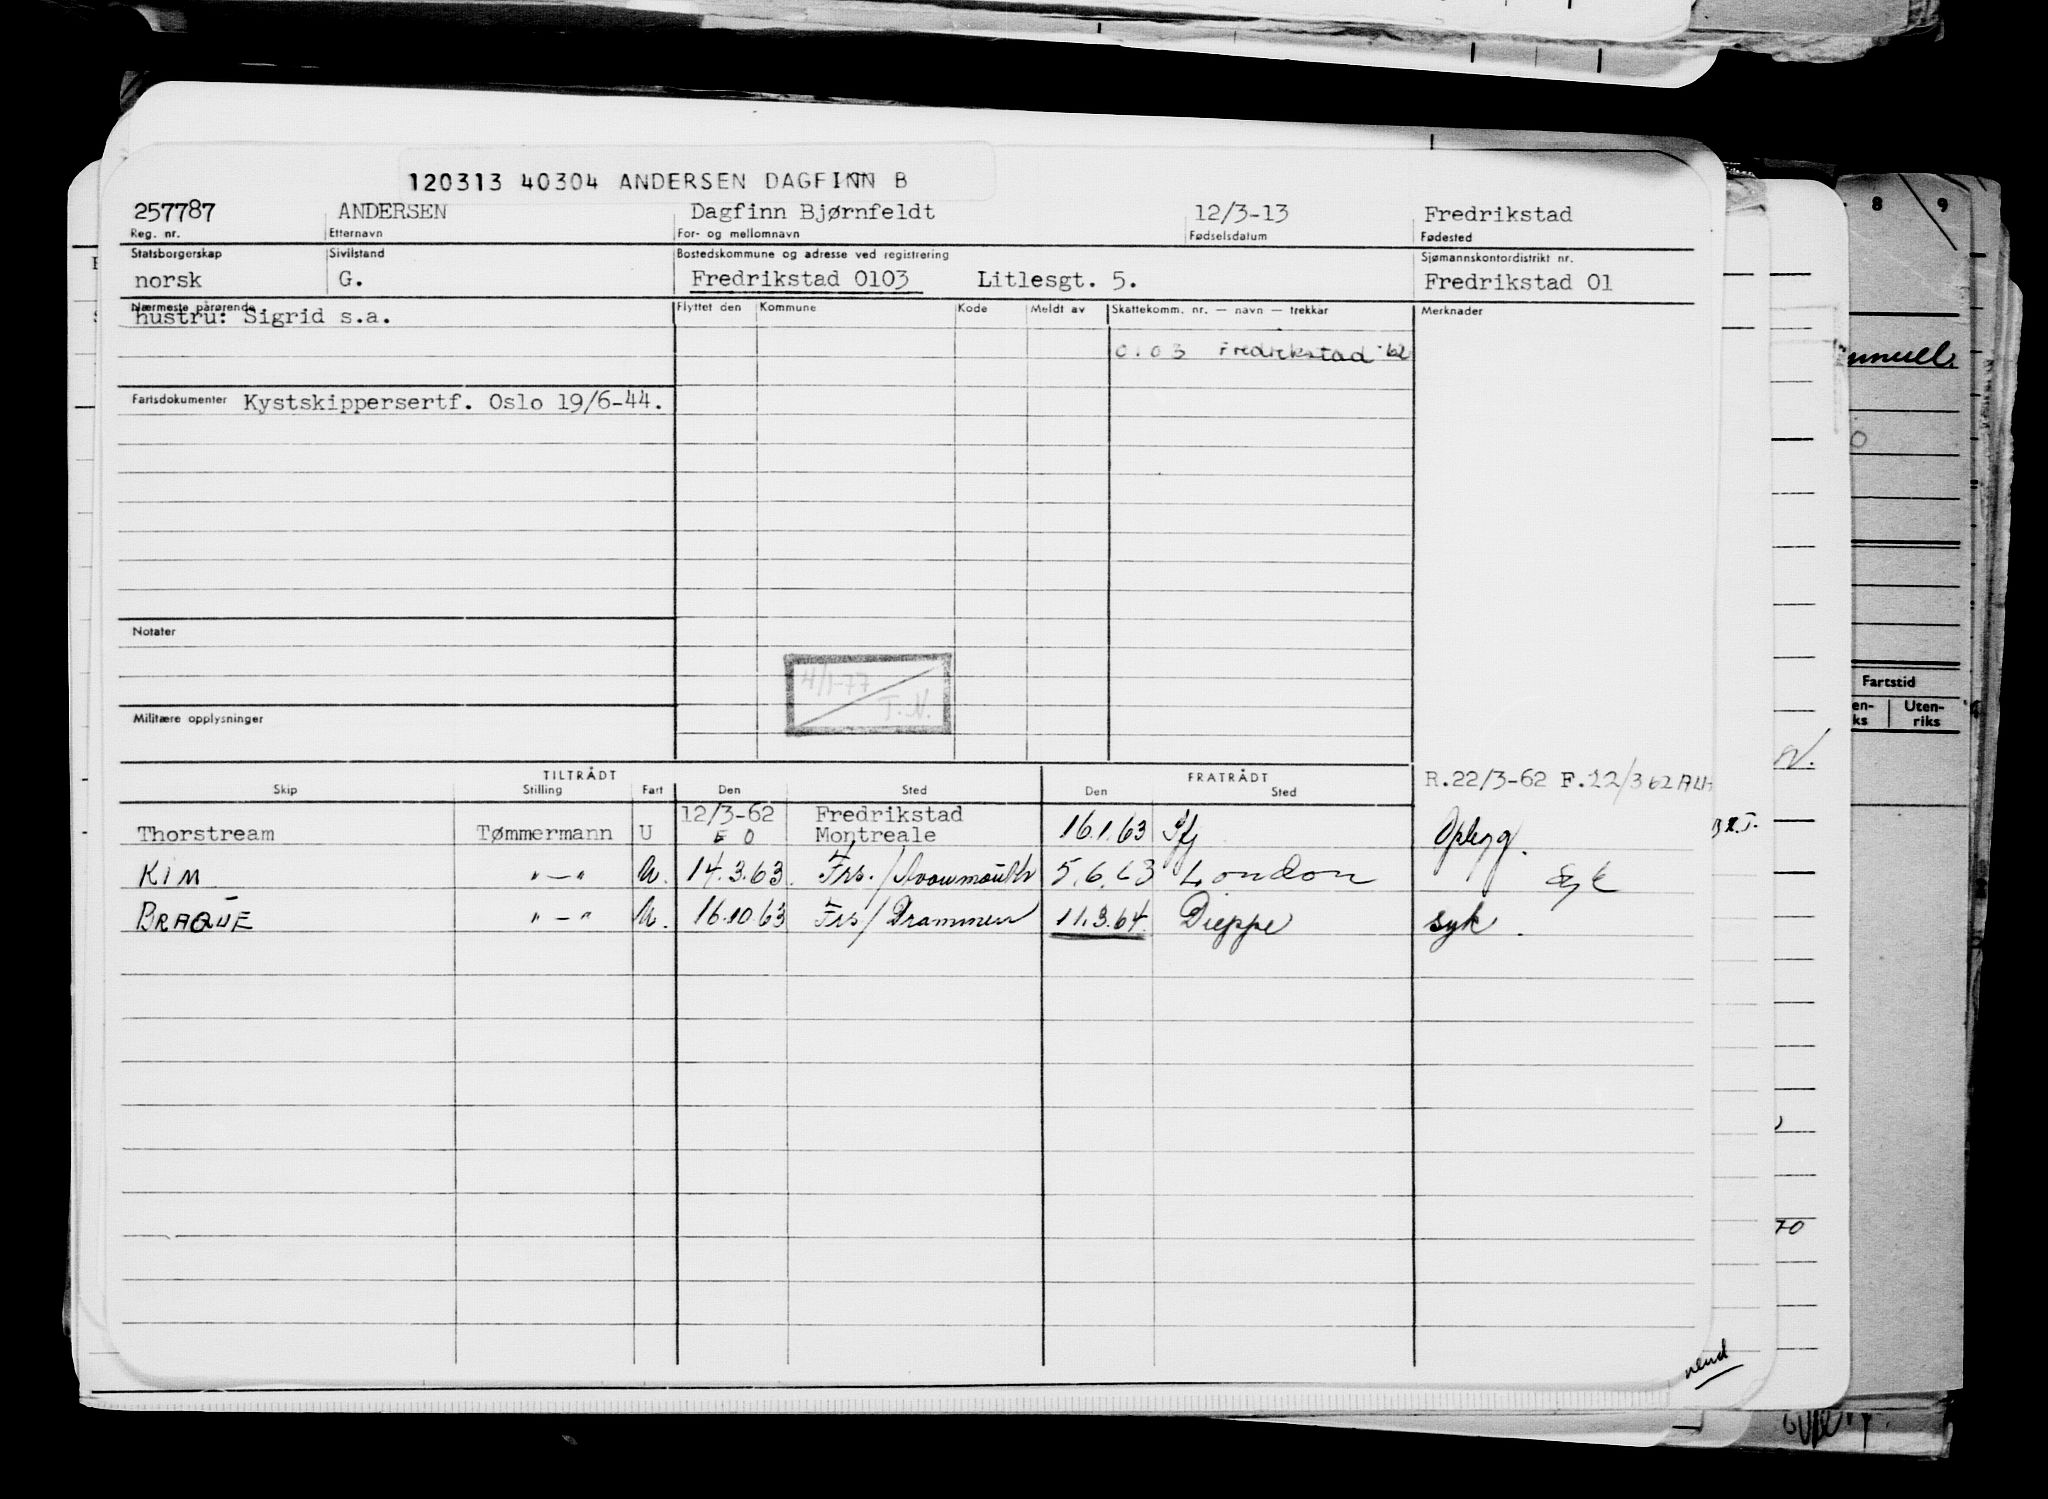 120313 40304 ANDERSEN DAGFINN B
257787 ANDERSEN Dagfinn Bjørnfeldt 12/3-13 Fredrikstad
Reg. nr. Etternavn For- og mellomnavn Fødselsdatum Fødested
Statsborgerskap Sivilstand Bostedskommune og adresse ved registrering Sjømannskontordistrikt nr.
norsk G. Fredrikstad 0103 Litlesgt. 5. Fredrikstad 01
Nærmeste pårørende Flyttet den Kommune Kode Meldt av Skattekomm. nr. — navn — trekkår Merknader
hustru: Sigrid s.a.
0103 Fredrikstad '62
Fartsdokumenter Kystskippersertf. Oslo 19/6-44.
Notater
4/1-77
T.N.
Militære opplysninger
TILTRÅDT FRATRÅDT R.22/3-62 F.22/3 62
Skip Stilling Fart Den Sted Den Sted
12/3-62 Fredrikstad
Thorstream Tømmermann U E O Montreale 16.1.63 Oplegg.
KIM "-" U. 14.3.63 Frs./Avonmouth 5.6.63 London Syk
BRAQUE "-" U. 16.10.63 Frs/Drammen 11.3.64. Dieppe syk.
vend
8 9
Fartstid
Uten-
riks
70